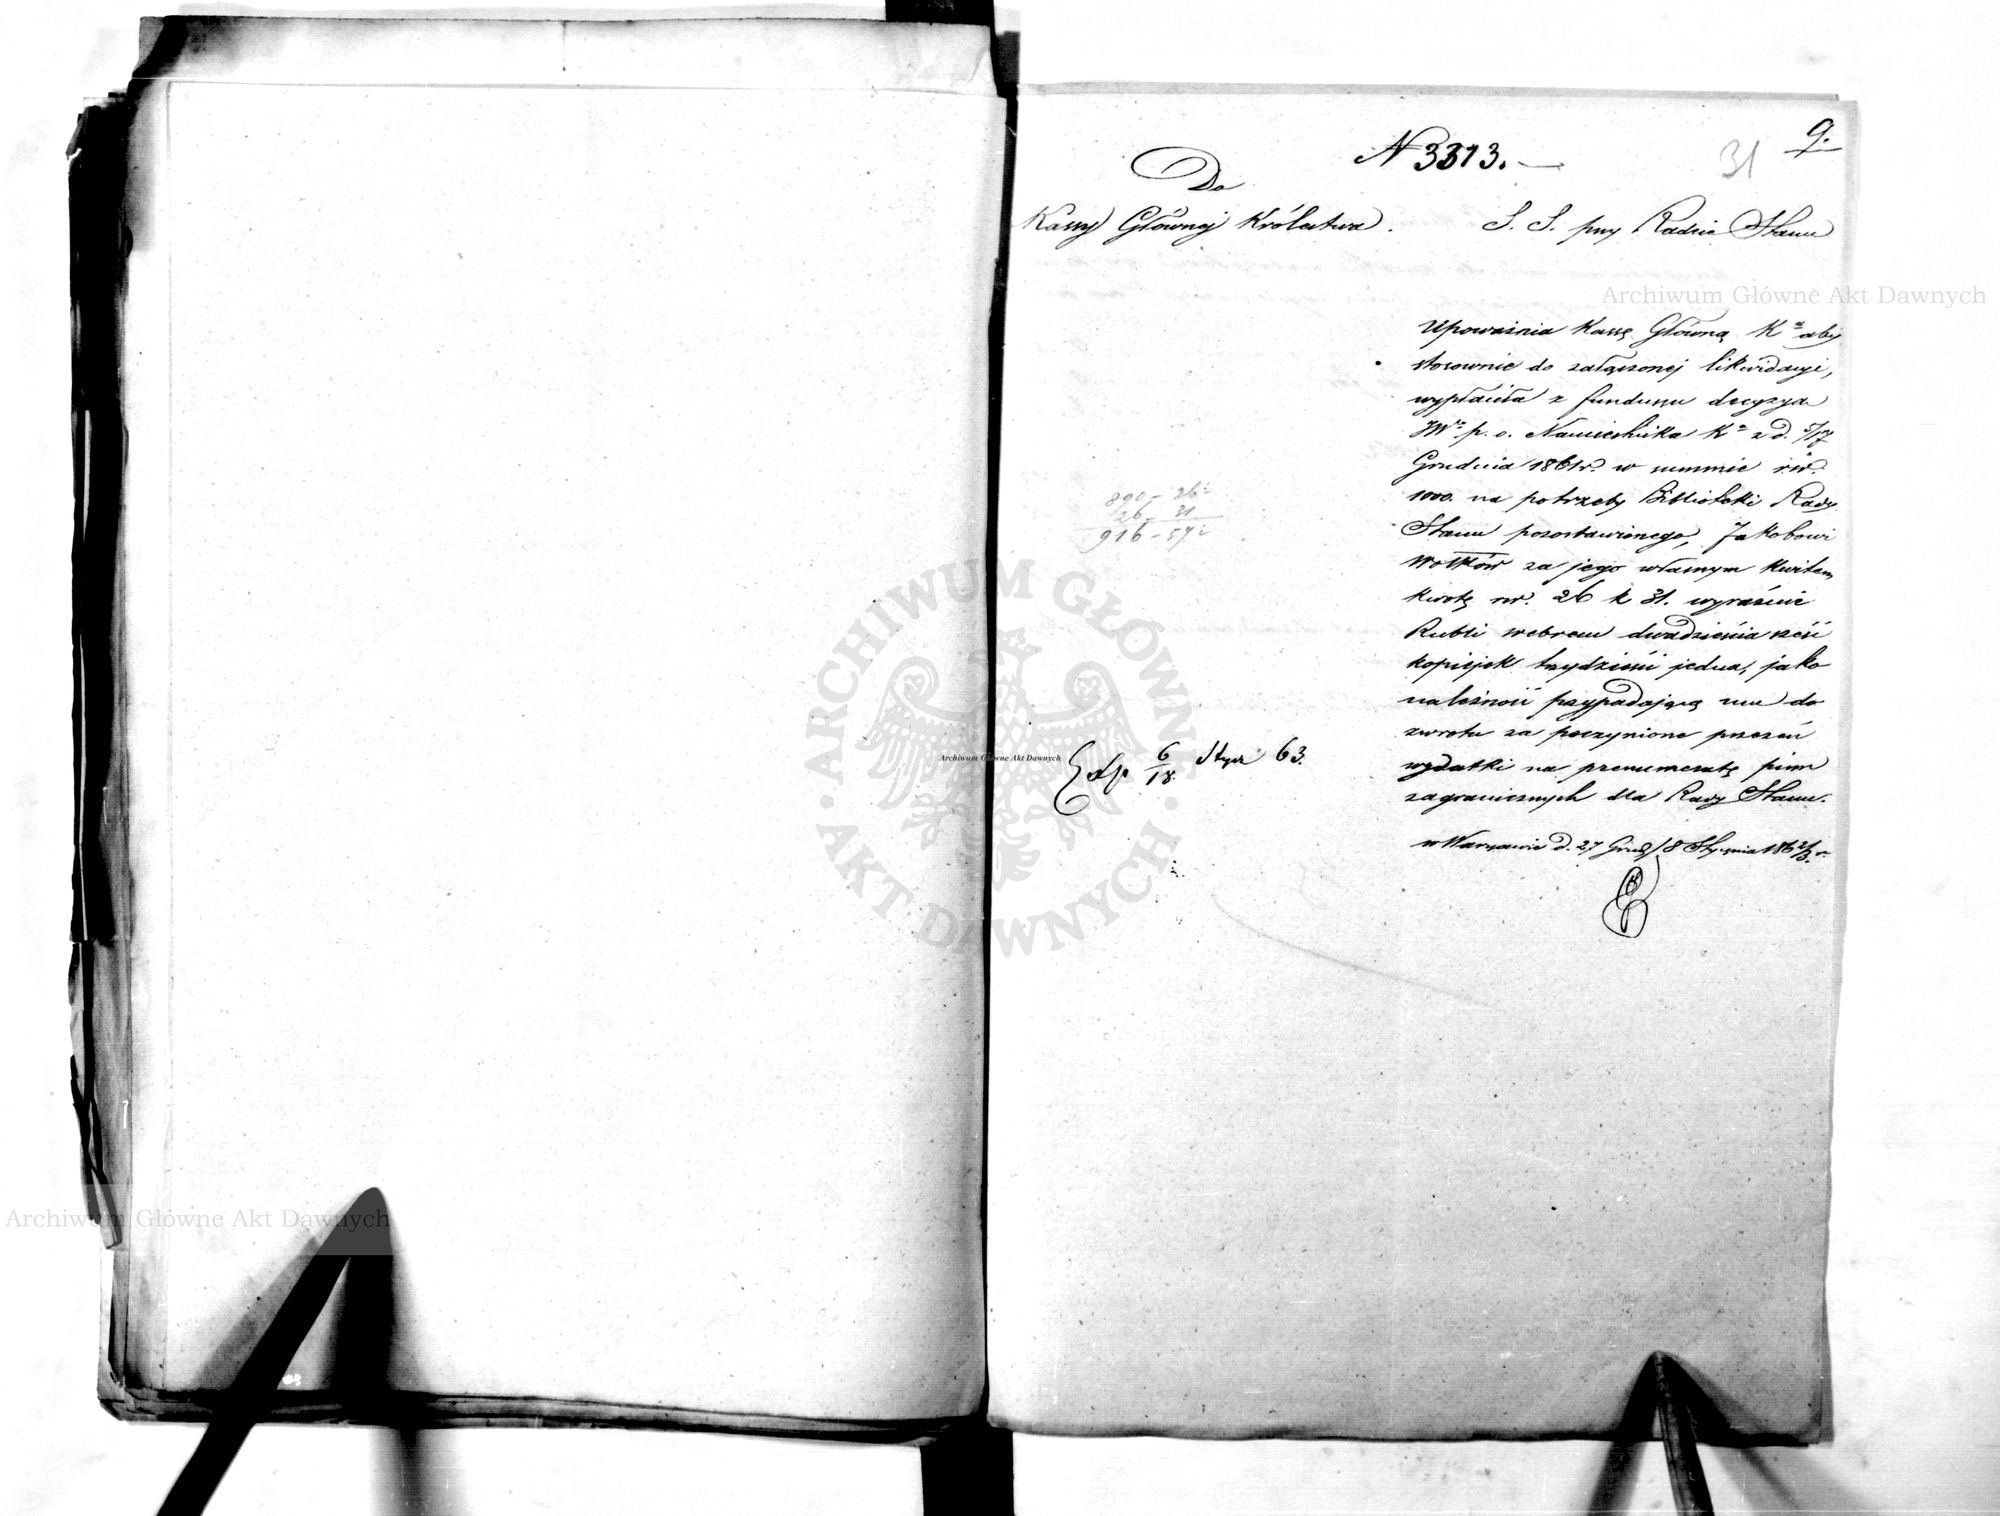 9.
31
N 3313.
Do
Kassy Głównej Królestwa.
S. S. przy Radzie Stanu
Upoważnia Kassę Główną K<sup>a</sup> aby
stosownie do załączonej likwidacyi,
wypłaciła z funduszu decyzyą
JW<sup>o</sup> p. o. Namiestnika K<sup>a</sup> z d. 5/17
Grudnia 1861 r. w summie rsr.
1000. na potrzeby Biblioteki Rady
Stanu pozostawionego, Jakobowi
Wołków za jego własnym kwitem
kwotę rsr. 26 k 31. wyraźnie
Rubli srebrem dwadzieścia sześć
kopiejek trzydzieści jedna, jako
należność przypadającą mu do
zwrotu za poczynione przezeń
wydatki na prenumeratę pism
zagranicznych dla Rady Stanu.
w Warszawie d. 27 Grud/8 Stycznia 1862/3. r.
890 - 26
26 - 31
916 - 57
Exp 6/18 Stycz 63.
Archiwum Główne Akt Dawnych
ARCHIWUM GŁÓWNE
AKT DAWNYCH
Archiwum Główne Akt Dawnych
Archiwum Główne Akt Dawnych